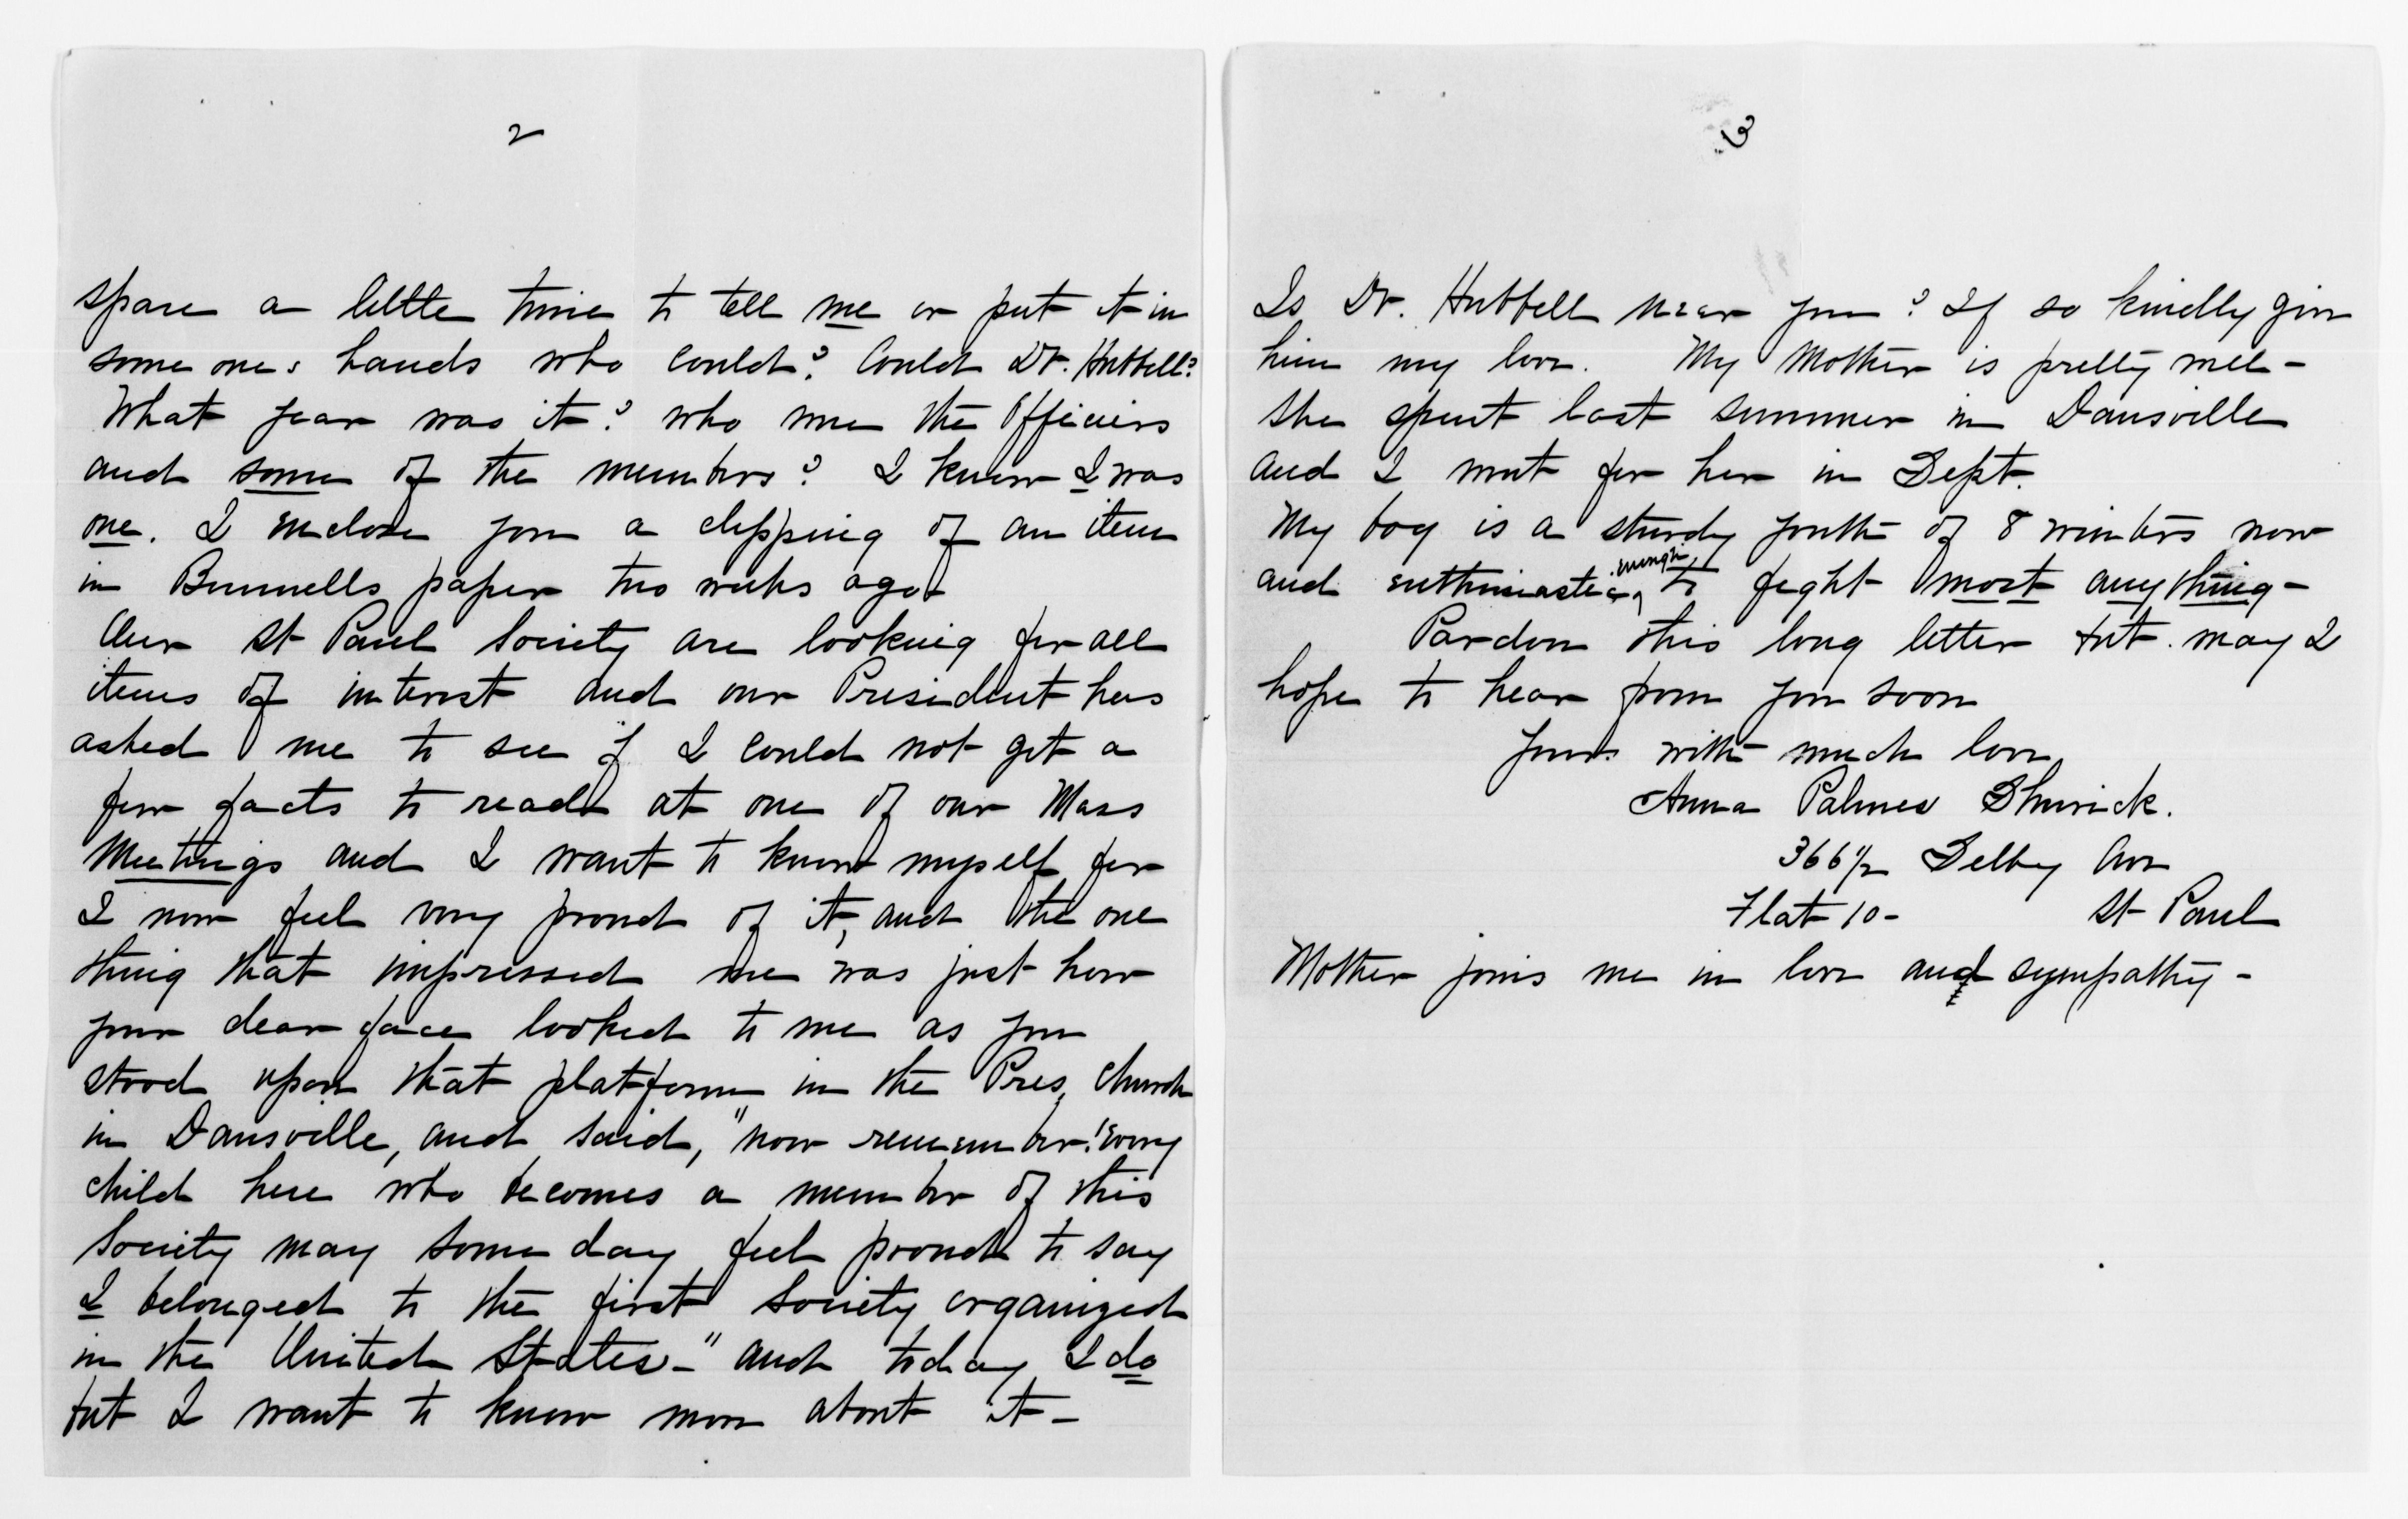 2
spare a little time to tell me or put it in
some one's hands who could? Could Dr. Hubbell?
What year was it? who were the Officers
and some of the members? I know I was
one. I enclose you a clipping of an item
in Bunnells paper two weeks ago
Our St Paul Society are looking for all
items of interest and our President has
asked me to see if I could not get a
few facts to read at one of our Mass
Meetings and I want to know myself for
I now feel very proud of it, and the one
thing that impressed me was just how
your dear face looked to me as you
stood upon that platform in the Pres. Church
in Dansville, and said, "now remember! every
child here who becomes a member of this
Society may some day feel proud to say
I belonged to the first Society organized
in the United States-" and today I do
but I want to know more about it-
3
Is Dr. Hubbell near you? If so kindly give
him my love. My Mother is pretty well-
she spent last summer in Dansville
and I went for her in Sept.
My boy is a sturdy youth of 8 winters now
and enthusiastic enough to fight most anything-
Pardon this long letter but may I
hope to hear from you soon
Yours with much love
Anna Palmes Shurick.
366 1/2 Selby Ave
Flat 10- St Paul
Mother joins me in love and sympathy-